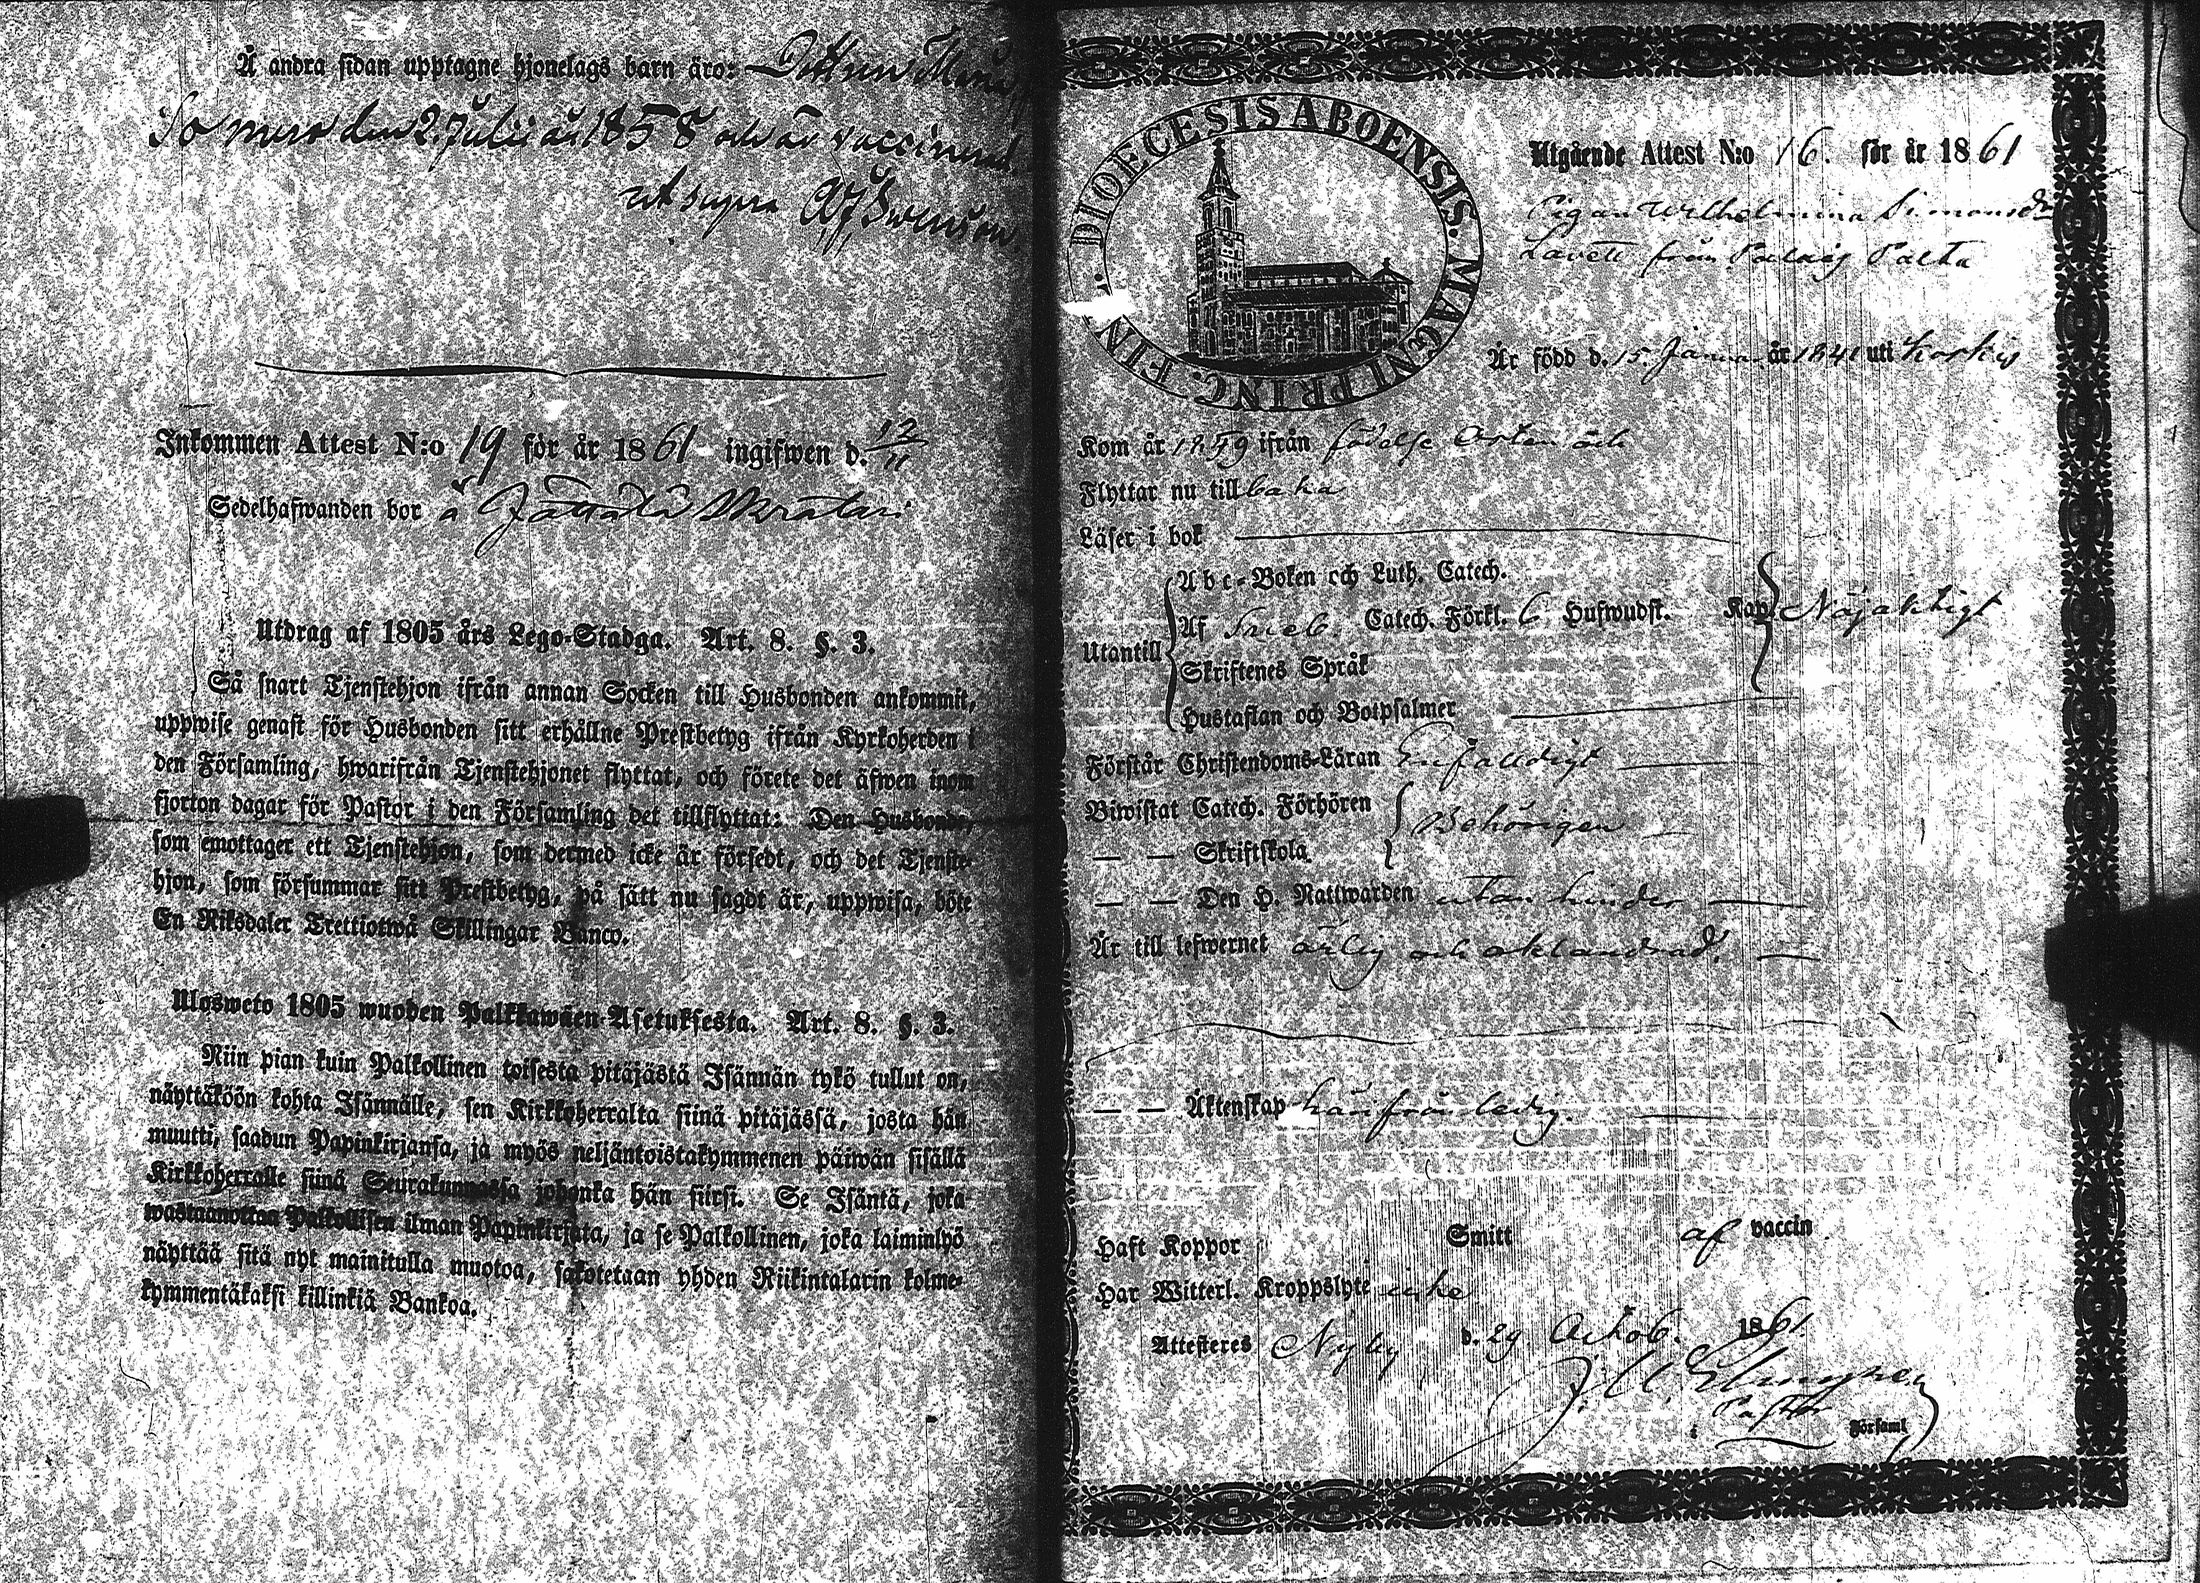 Å andra sidan upptagne hjonelags barn äro: Dottren Maria
Somero den 2 Julii år 1858 och är vaccinerad
ut supra
Inkommen Attest N:o 19 för år 1861 ingifwen d. 12/11
Sedelhafwanden bor å Jättälä
Utdrag af 1805 års Lego-Stadga. Art. 8. §. 3.
Så snart Tjenstehjon ifrån annan Socken till Husbonden ankommit,
uppwise genast för Husbonden sitt erhållne Prestbetyg ifrån Kyrkoherden i
den Församling, hwarifrån Tjenstehjonet flyttat, och förete det äfwen inom
fjorton dagar för Pastor i den Församling det tillflyttat: Den Husbonde,
som emottager ett Tjenstehjon, som dermed icke är försedt, och det Tjenste-
hjon, som försummar sitt Prestbetyg, på sätt nu sagdt är, uppwisa, böte
En Riksdaler Trettiotwå Skillingar Banco.
Ulosweto 1805 wuoden Palkkawäen-Asetuksesta. Art. 8. §. 3.
Niin pian kuin Palkollinen toisesta pitäjästä Isännän tykö tullut on,
näyttäköön kohta Isännälle, sen Kirkkoherralta siinä pitäjässä, josta hän
muutti, saadun Papinkirjansa, ja myös neljäntoistakymmenen päiwän sisällä
Kirkkoherralle siinä Seurakunnassa johonka hän siirsi. Se Isäntä, joka
wastaanottaa Palkollisen ilman Papinkirjata, ja se Palkollinen, joka laiminlyö
näyttää sitä nyt mainitulla muotoa, sakotetaan yhden Riikintalarin kolme-
kymmentäkaksi killinkiä Bankoa.
DIOECESIS ABOENSIS. MAGNI PRINC. FIN.
Utgående Attest N:o 16. för år 1861
Pigan Wilhelmina Simonsdr
från Palta
Är född d. 15. Januar. år 1841 uti Koskis
Kom år 1859 ifrån födelse Orten och
Flyttar nu tillbaka
Läser i bok
Utantill
Abc-Boken och Luth. Catech.
Af Sweb. Catech. Förkl. 6 Hufwudst. Kap. Nöjaktigt
Skriftenes Språk
Hustaflan och Botpsalmer
Förstår Christendoms-Läran Enfaldigt
Biwistat Catech. Förhören Behörigen
— — Skriftskola.
— — Den H. Nattwarden utan hinder
Är till lefwernet ärlig och oklandrad.
— — Äktenskap härifrån ledig.
Haft Koppor Smitt af vaccin
Har Witterl. Kroppslyte icke
Attesteres Nyby d. 29 Octob. 1861.
Pastor
i Församl